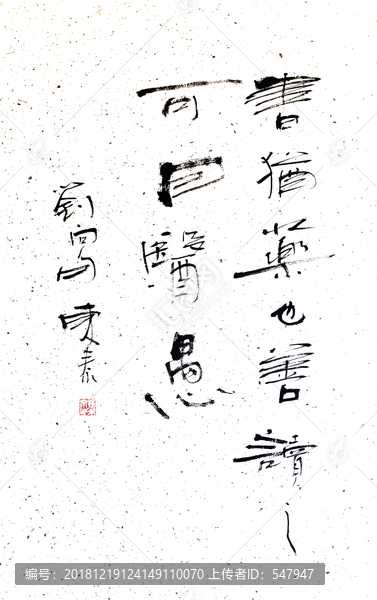 書猶藥也善讀之
可以醫愚
劉向句
编号：20181219124149110070 上传者ID：547947